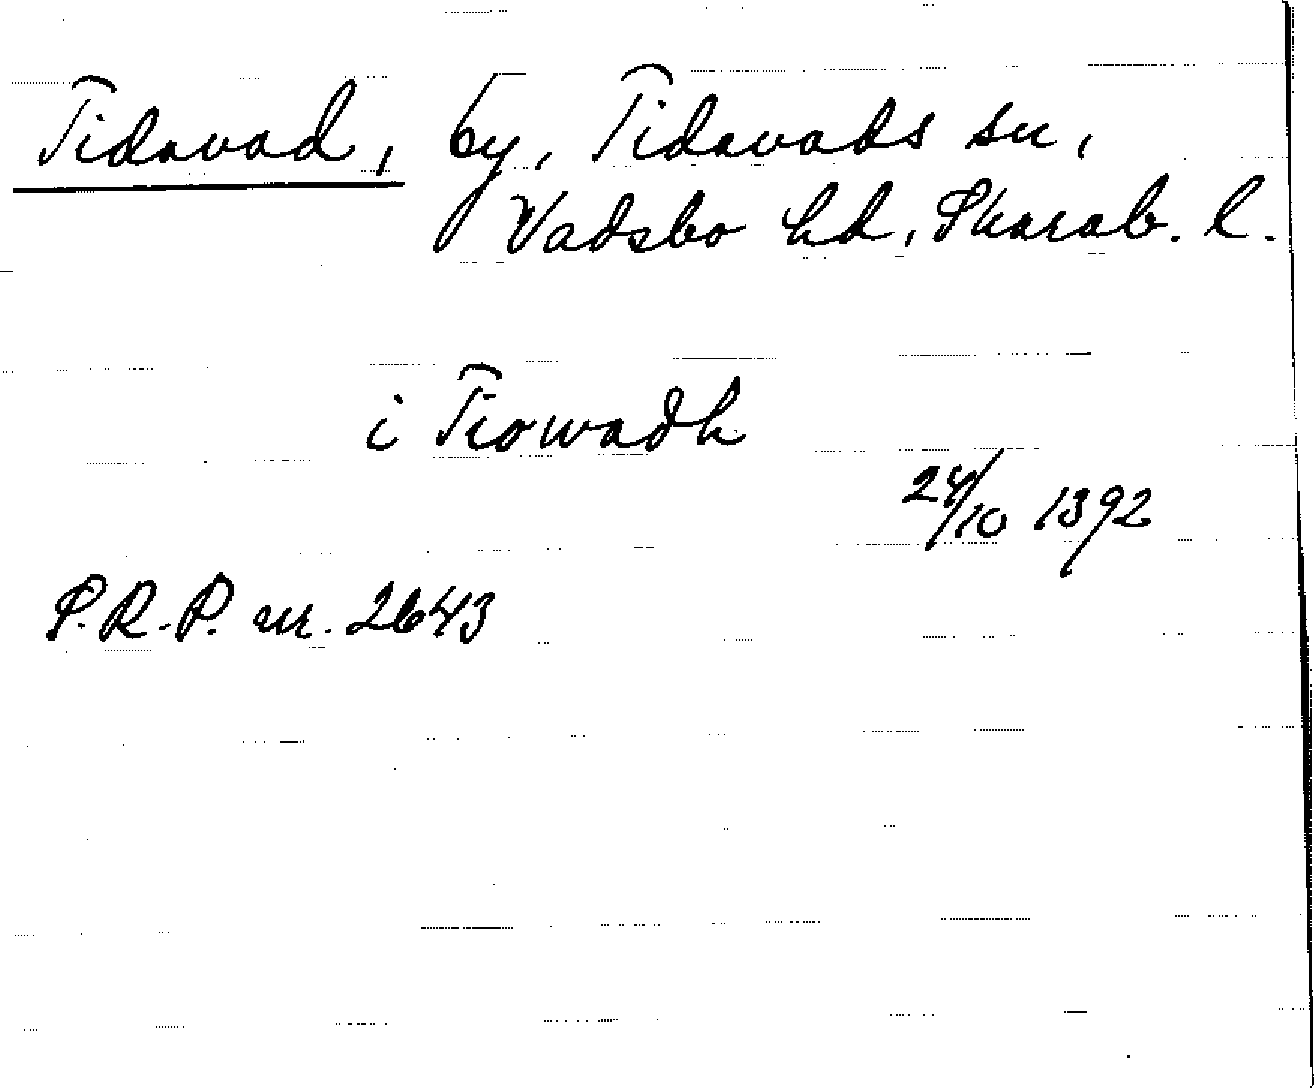 Tidavad, by, Tidavads sn,
Vadsbo hd, Skarab. l.
i Tiowadh
24/10 1392
S.R.P. nr. 2643